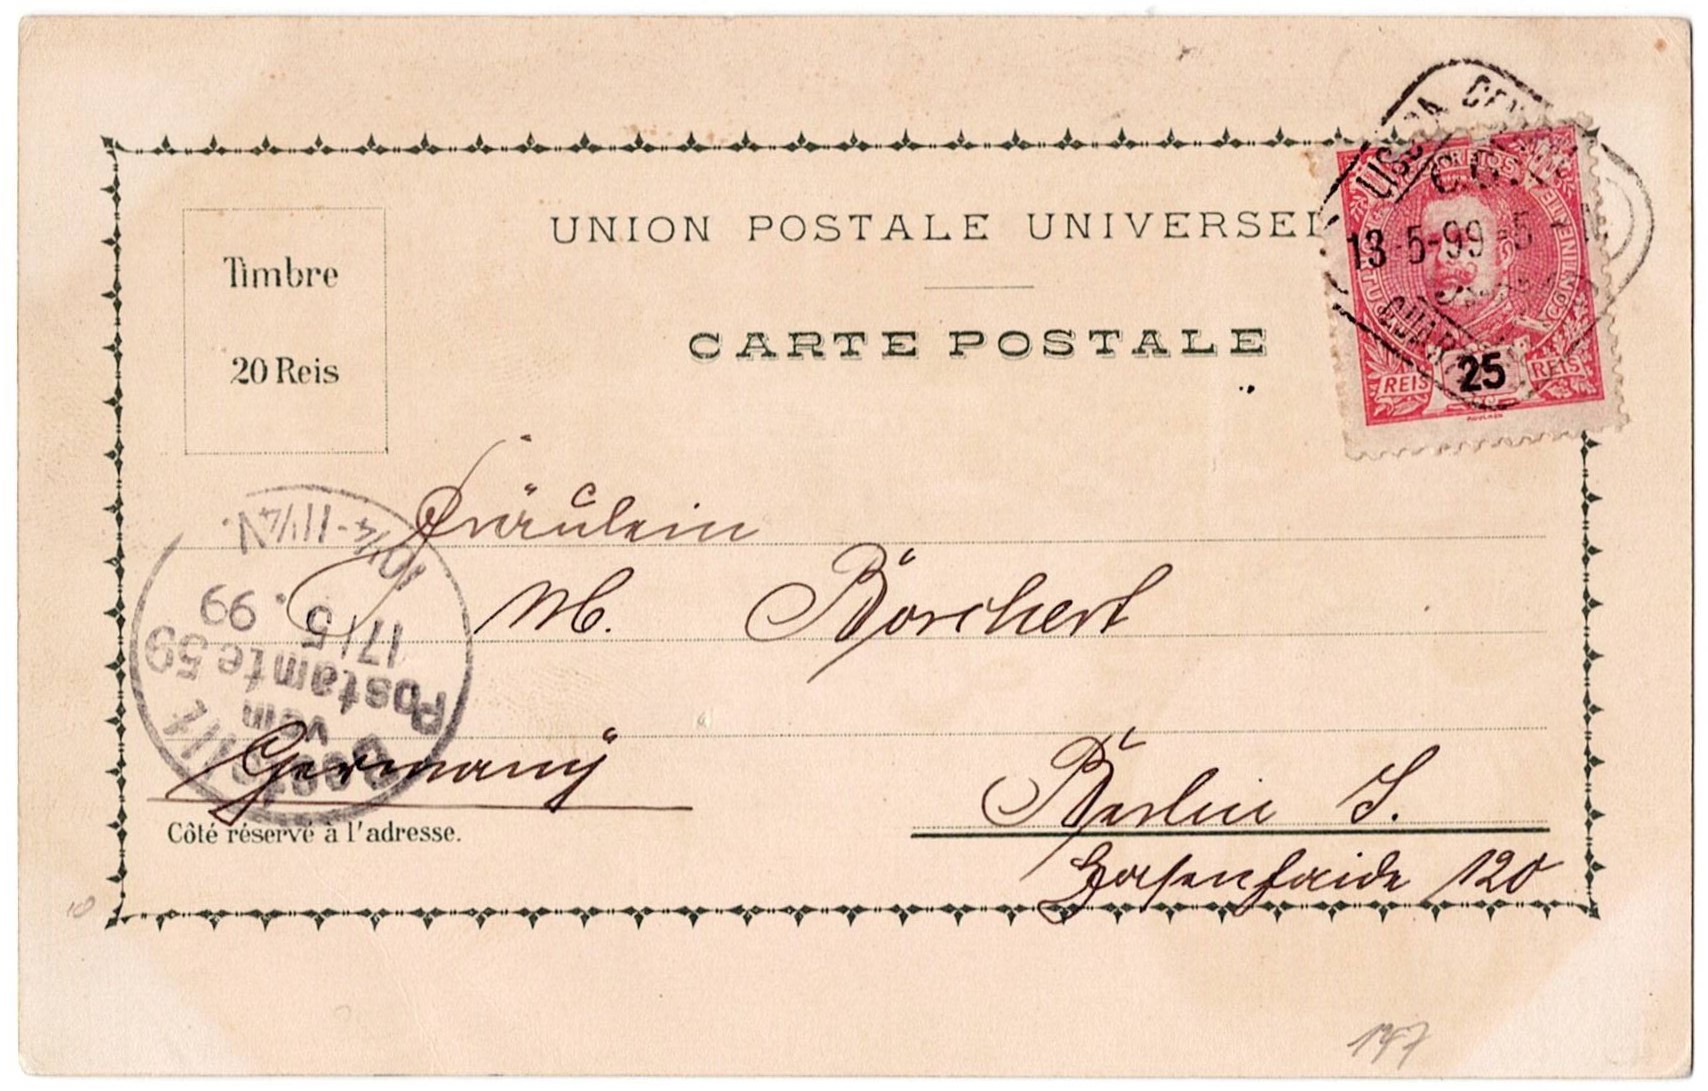 UNION POSTALE UNIVERSEL
CARTE POSTALE
Timbre
20 Reis
LISBOA CEN
13-5-99-5
CORREIOS
CONTINENTE
REIS 25 REIS
Fräulein
M. Borchert
Germany
Berlin S.
Hasenhaide 120
Côté réservé à l'adresse.
Bestellt
vom
Postamte 59
17/5 . 99
10¼-11¼V.
147